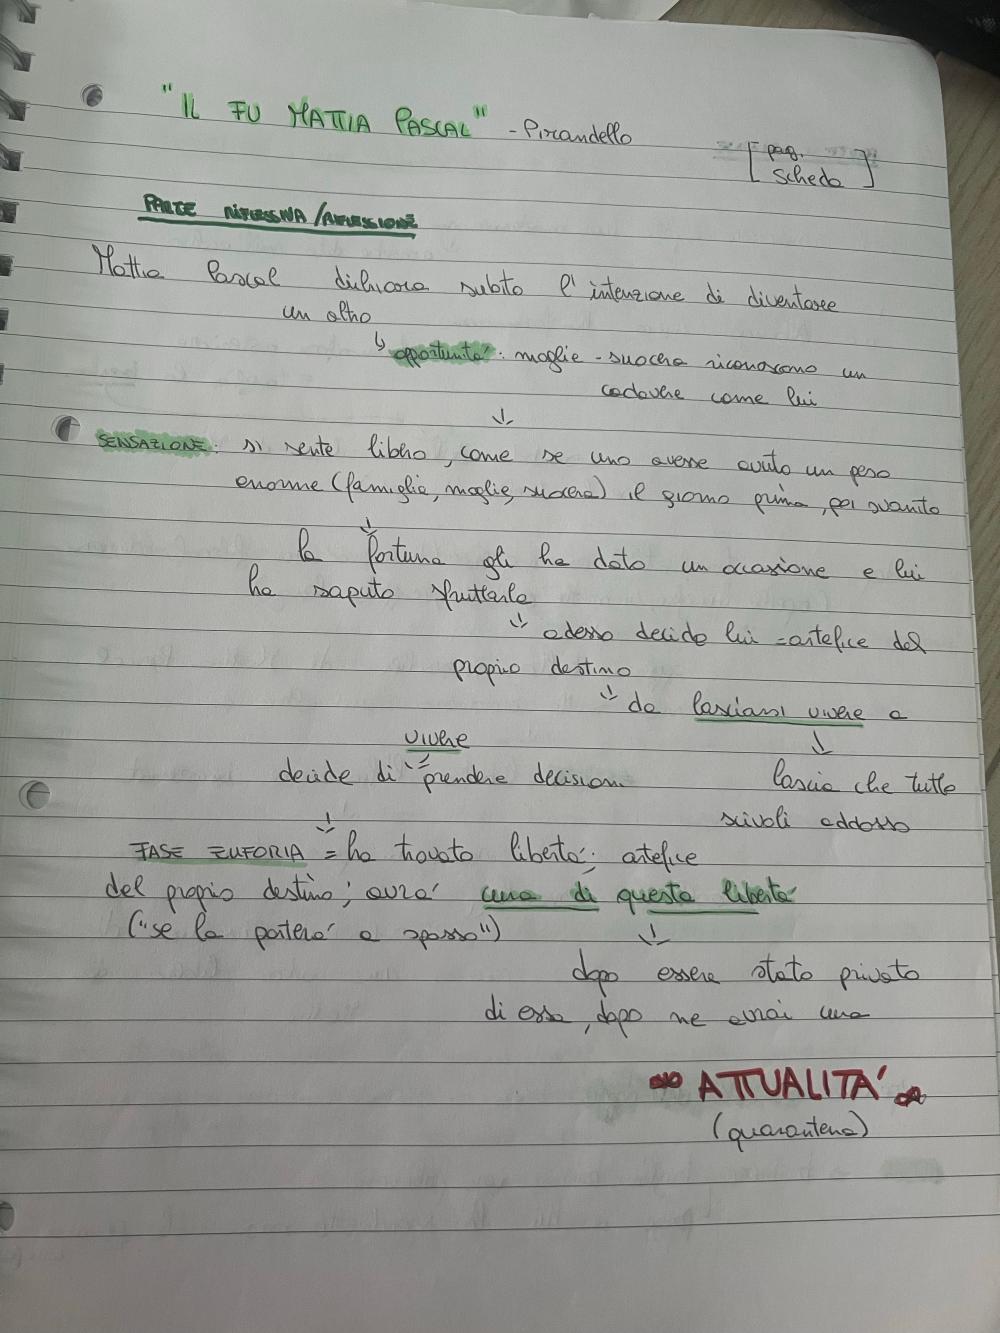 "IL FU MATTIA PASCAL" - Pirandello
[ pag. scheda ]
PARTE RIFLESSIVA/RIFLESSIONE
Mattia Pascal dichiara subito l'intenzione di diventare
un altro
↳ opportunità: moglie - suocera riconoscono un
cadavere come lui
↓
SENSAZIONE: si sente libero, come se uno avesse avuto un peso
enorme (famiglia, moglie, suocera) il giorno prima, poi svanito
↓
la fortuna gli ha dato un occasione e lui
ha saputo sfruttarla
↓ adesso decide lui = artefice del
proprio destino
↓ da lasciarsi vivere a
vivere ↓
decide di prendere decisioni lascia che tutto
scivoli addosso
↓
FASE EUFORIA = ha trovato libertà: artefice
del proprio destino; avrà cura di questa libertà
("se la porterà a spasso") ↓
dopo essere stato privato
di essa, dopo ne avrai cura
ATTUALITÀ
(quarantena)